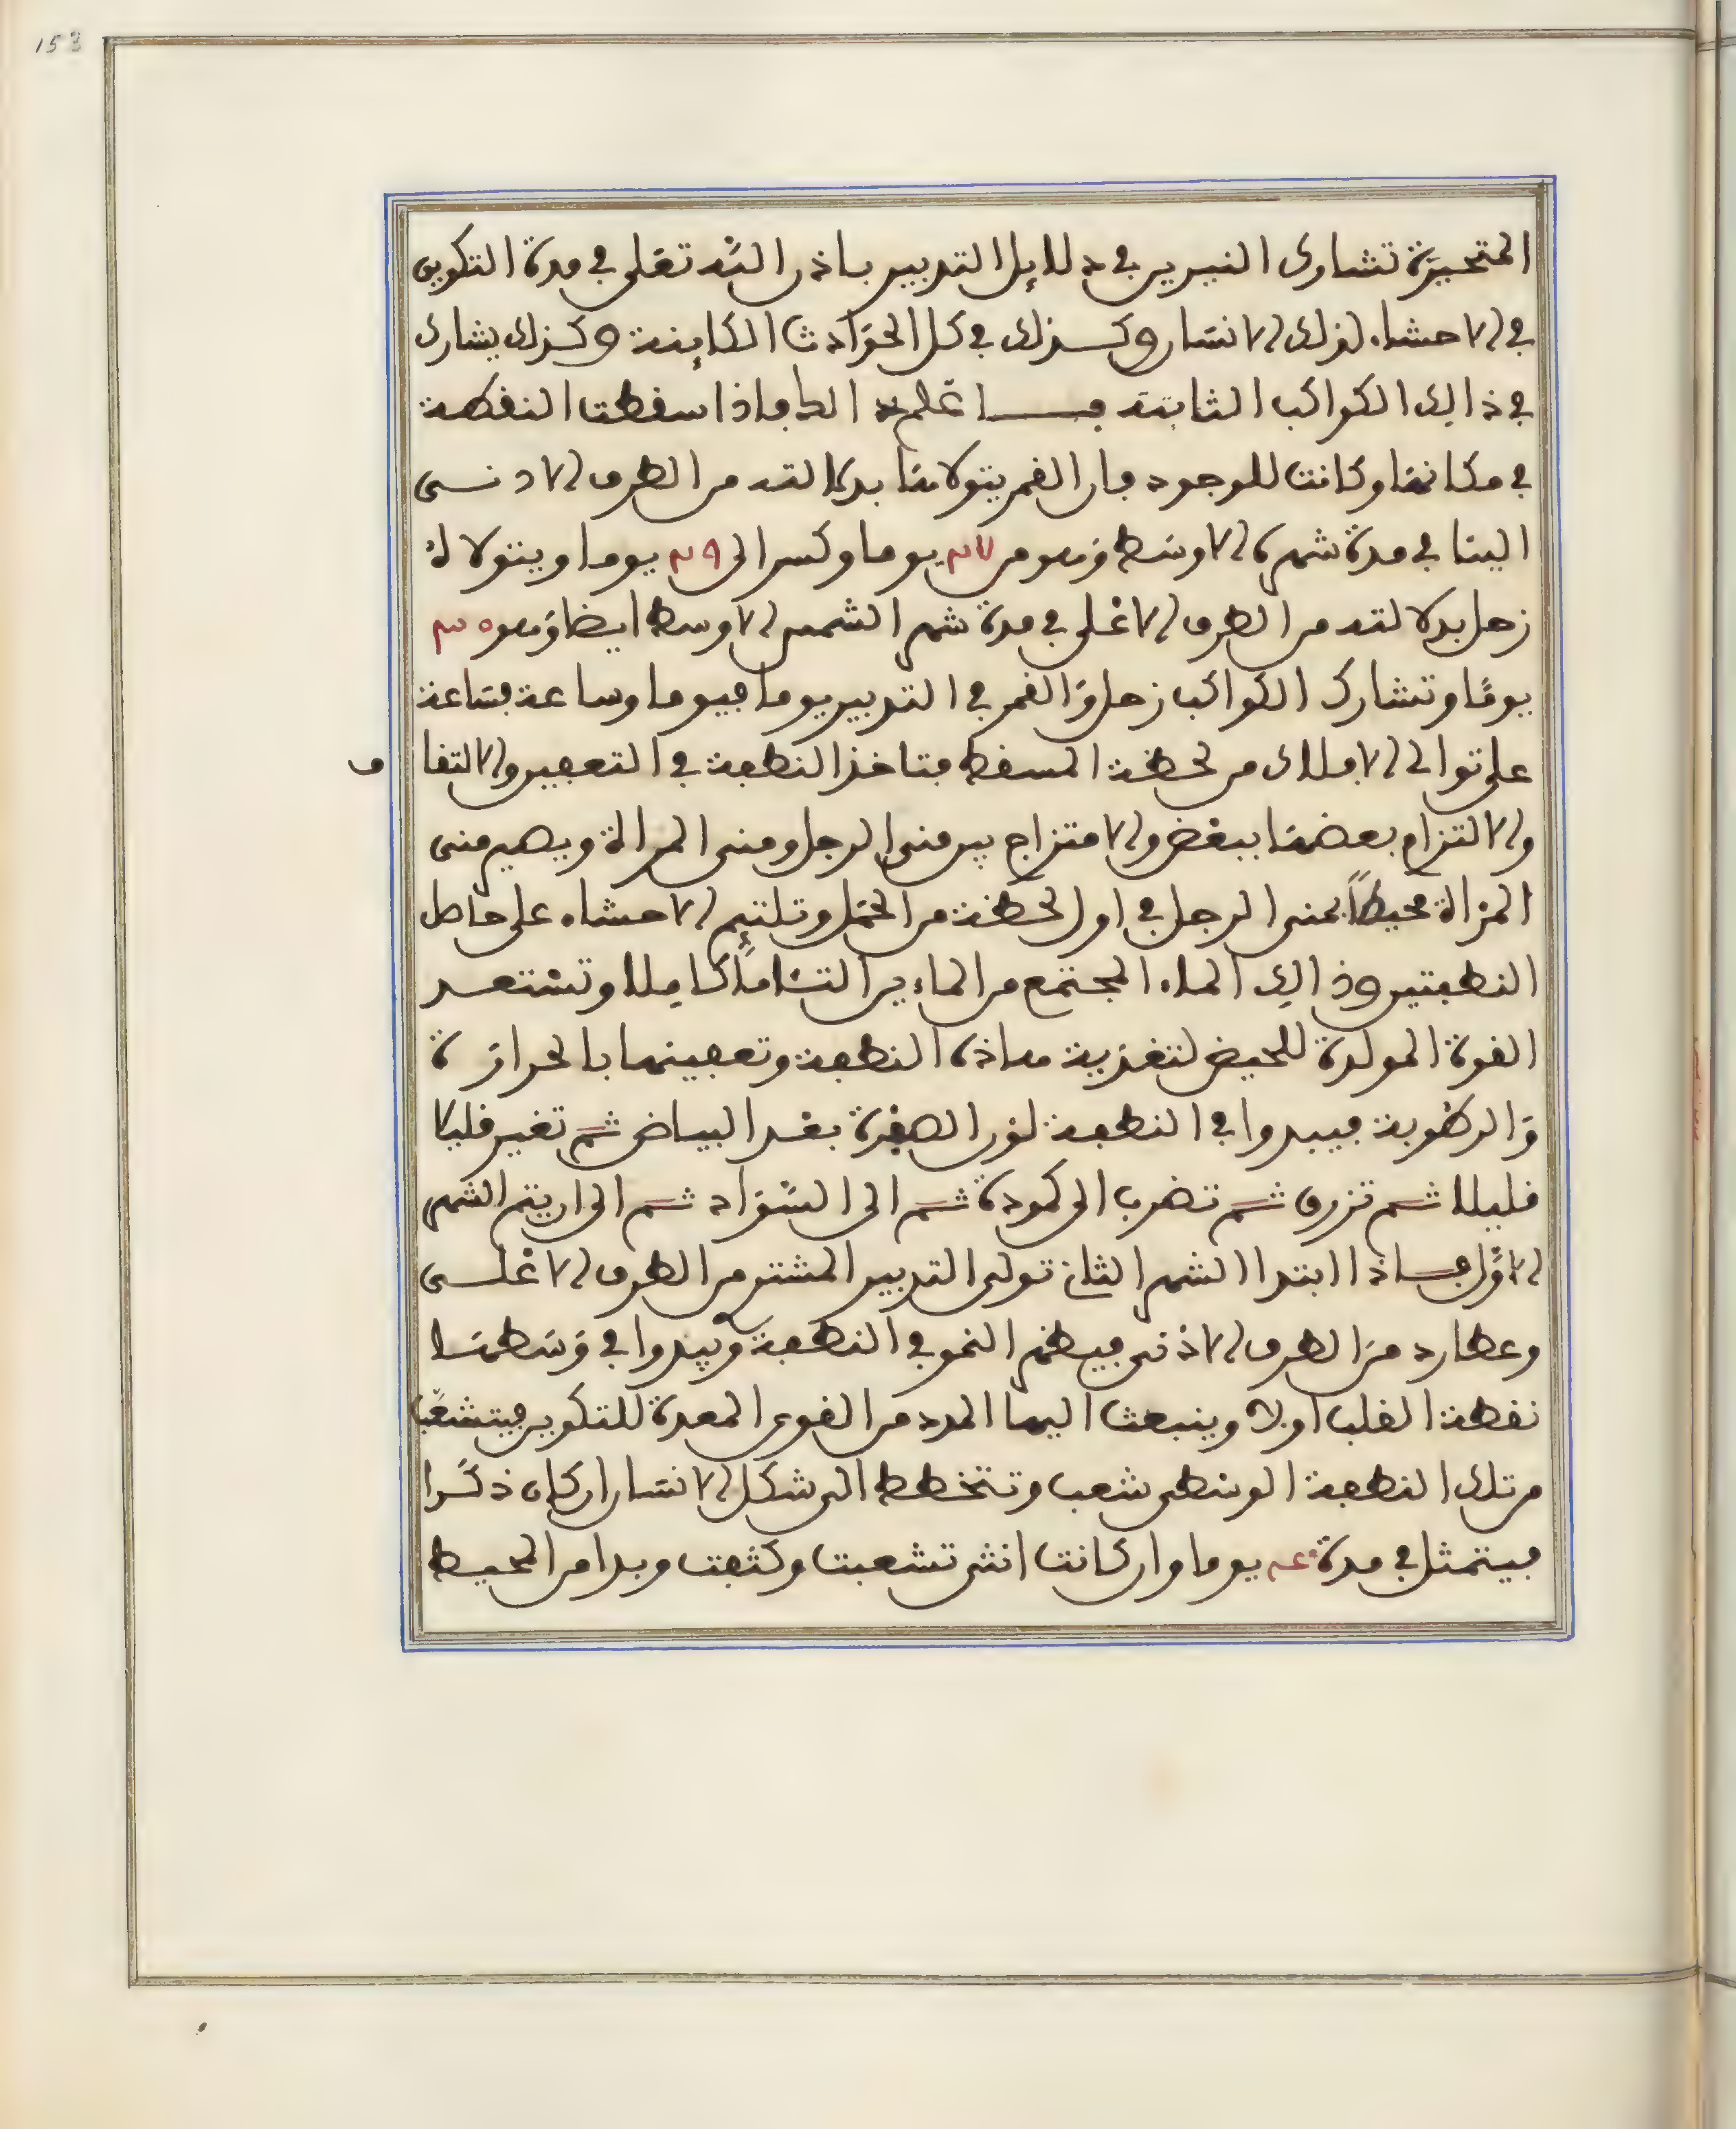 153
المتحيزة تشارك النيرين في دلايل التدبير باذن الله تعلى في مدة التكوين
في الاحشاء لذلك الانسان وكذلك في كل الحوادث الكاينة وكذلك يشارك
في ذالك الكواكب الثابتة فاعلم ذا سقطت النقطة
في مكانها وكانت للوجود فان القمر يتولاها بدلالته من الطرف الادنى
الينا في مدة شهره الاوسط وهو من ٢٧ يوما وكسر الى ٢٩ يوما ويتولا لـ
زحل بدلالته من الطرف الاعلى في مدة شهر الشمس الاوسط ايضا وهو ٣٠
يوما وتشارك الكواكب زحل والقمر في التدبير يوما فيوما وساعة فساعة
على توالي الافلاك من لحظة المسقط فتاخذ النطفة في التعفين والالتفا ف
والالتزام بعضها ببعض والامتزاج بين مني الرجل ومني المراة ويصير مني
المراة محيطا بمني الرجل في اول لحظة من الحمل وتلتئم الاحشاء على حاصل
النطفتين وذالك الماء المجتمع من الماءين التئاما كاملا وتستعد
القوة المولدة للحيض لتغذية ماذة النطفة وتعفينها بالحرارة
والرطوبة فيبدوا في النطفة لون الصفرة بعد البياض ثم تغير قليلا
قليلا ثم تزرق ثم تضرب الى كمودة ثم الى السواد ثم الى ان يتم الشهر
الاول فاذا ابتدا الشهر الثاني تولى التدبير المشتر من الطرف الاعلى
وعطارد من الطرف الاذنى فيظهر النمو في النطفة ويبدوا في وسطها
نقطة القلب اولا وينبعث اليها المدد من القوى المعدة للتكوين فيتشعب
من تلك النطفة الوسطى شعب وتتخطط الى شكل الانسان ان كان ذكرا
فيتمثل في مدة ٤٠ يوما وان كانت انثى تشعبت وكثفت وبدا من المحيط